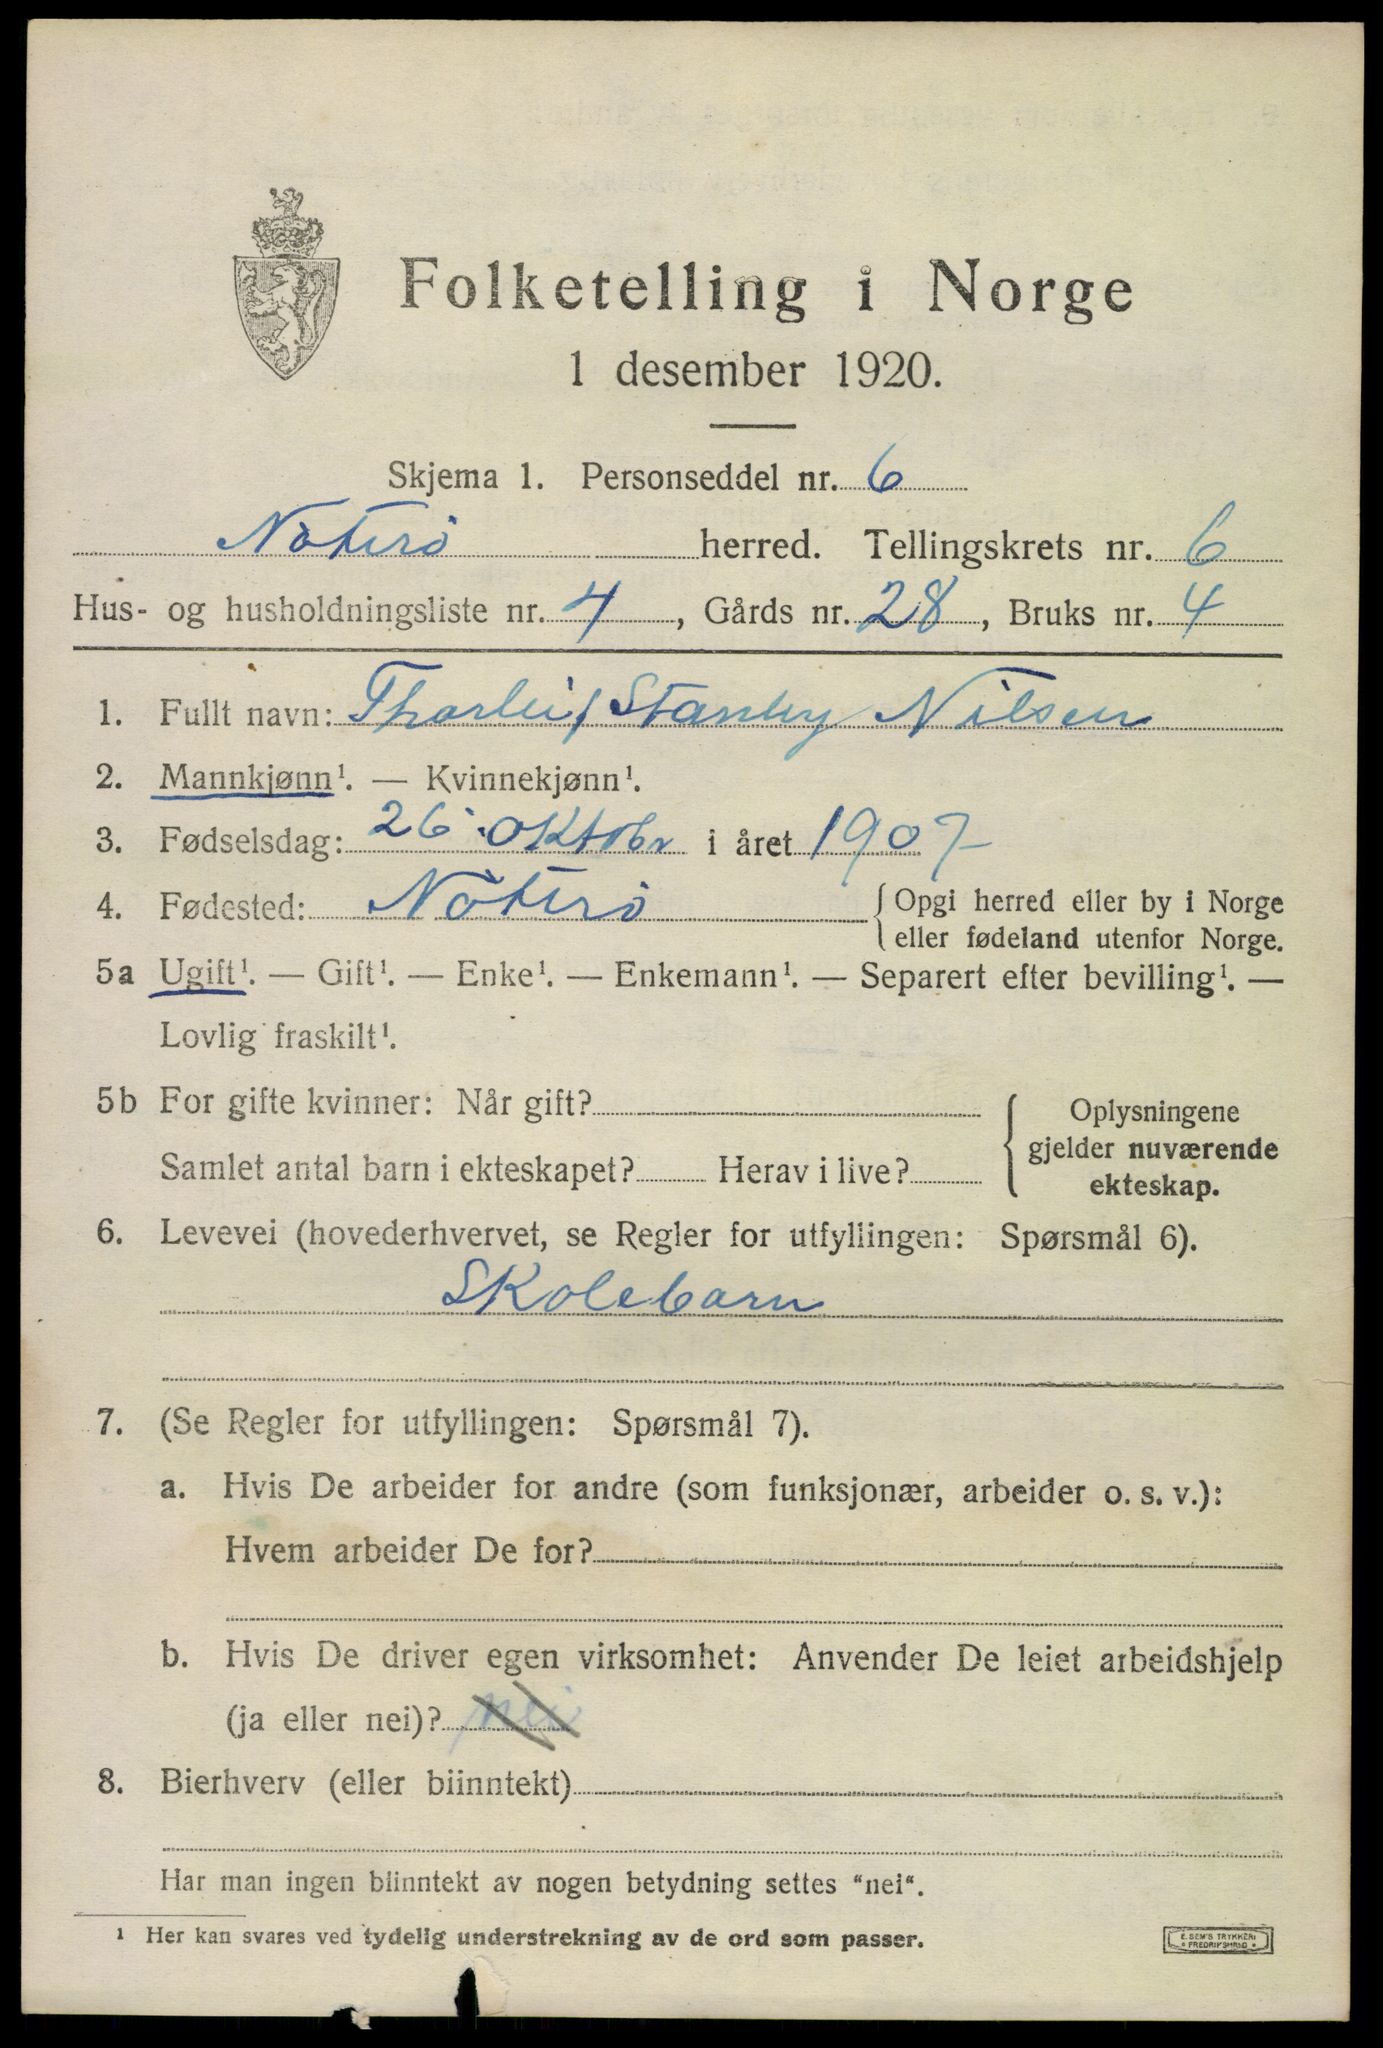 Folketelling i Norge
1 desember 1920.
Skjema 1. Personseddel nr. 6
Nøterø herred. Tellingskrets nr. 6
Hus- og husholdningsliste nr. 4, Gårds nr. 28, Bruks nr. 4
1. Fullt navn: Thorleif Stanley Nilsen
2. Mannkjønn¹. — Kvinnekjønn¹.
3. Fødselsdag: 26 Oktobr i året 1907
4. Fødested: Nøterø {Opgi herred eller by i Norge
eller fødeland utenfor Norge.
5a Ugift¹. — Gift¹. — Enke¹. — Enkemann¹. — Separert efter bevilling¹. —
Lovlig fraskilt¹.
5b For gifte kvinner: Når gift?
Samlet antal barn i ekteskapet? Herav i live?
Oplysningene
gjelder nuværende
ekteskap.
6. Levevei (hovederhvervet, se Regler for utfyllingen: Spørsmål 6).
Skolebarn
7. (Se Regler for utfyllingen: Spørsmål 7).
a. Hvis De arbeider for andre (som funksjonær, arbeider o. s. v.):
Hvem arbeider De for?
b. Hvis De driver egen virksomhet: Anvender De leiet arbeidshjelp
(ja eller nei)? nei
8. Bierhverv (eller biinntekt)
Har man ingen biinntekt av nogen betydning settes "nei".
¹ Her kan svares ved tydelig understrekning av de ord som passer.
E. SEM'S TRYKKERI
• FREDRIKSHALD •